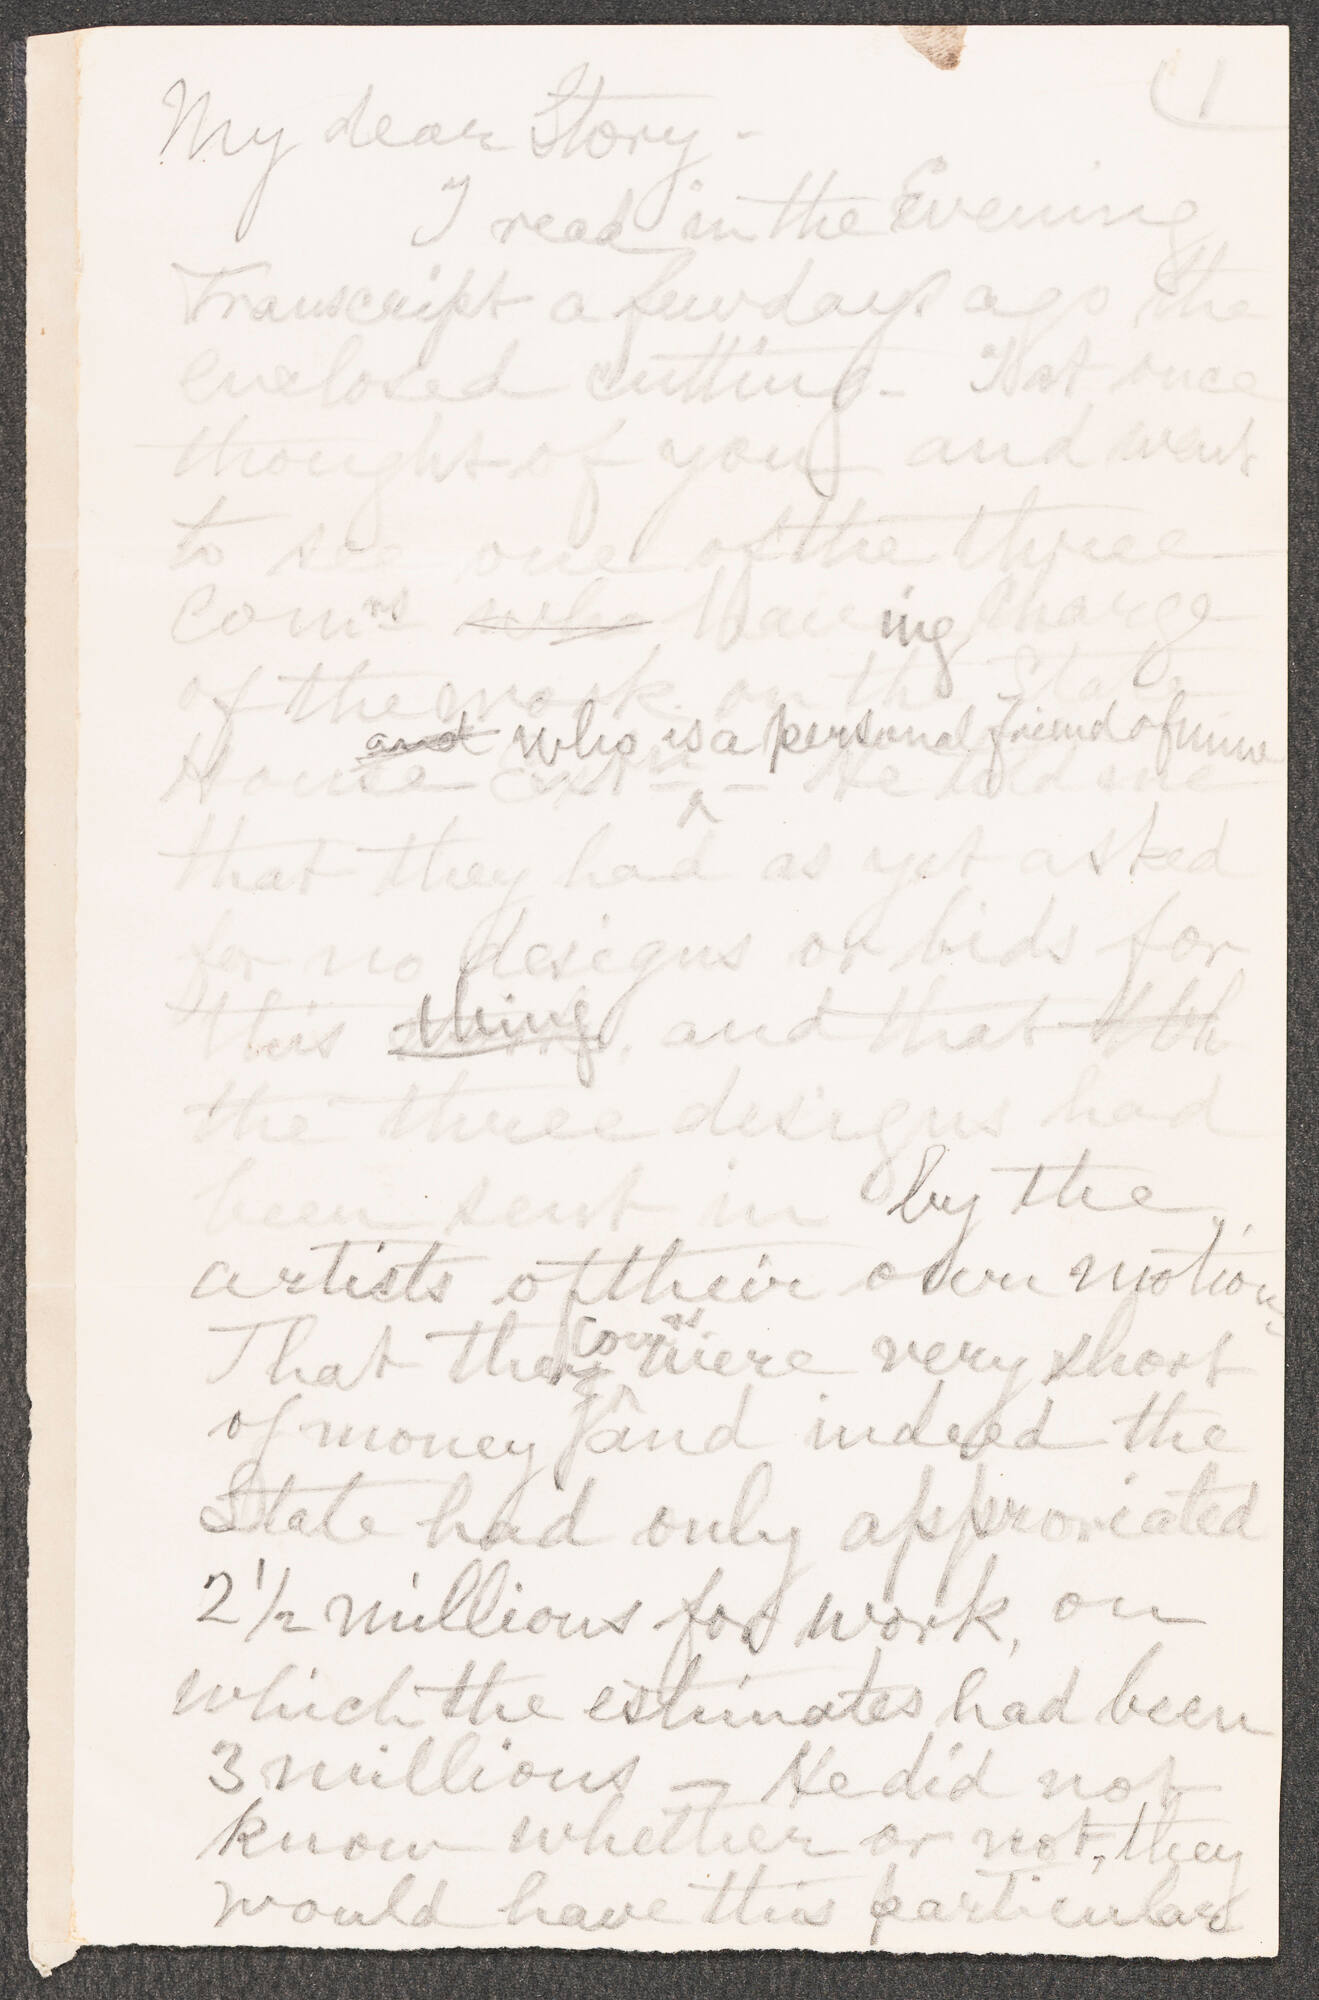 (1
My dear Story -
I read in the Evening
Transcript a few days ago the
enclosed cutting - I at once
thought of you and went
to see one of the three
Comrs who having charge
of the work on the State
and who is a personal friend of mine
House Extn - He told me
that they had as yet asked
for no designs or bids for
this thing, and that
the three designs had
been sent in by the
artists of their own motion,
That the Comrs were very short
of money and indeed the
State had only approriated
2 1/2 millions for work, on
which the estimates had been
3 millions - He did not
know whether or not, they
would have this particular